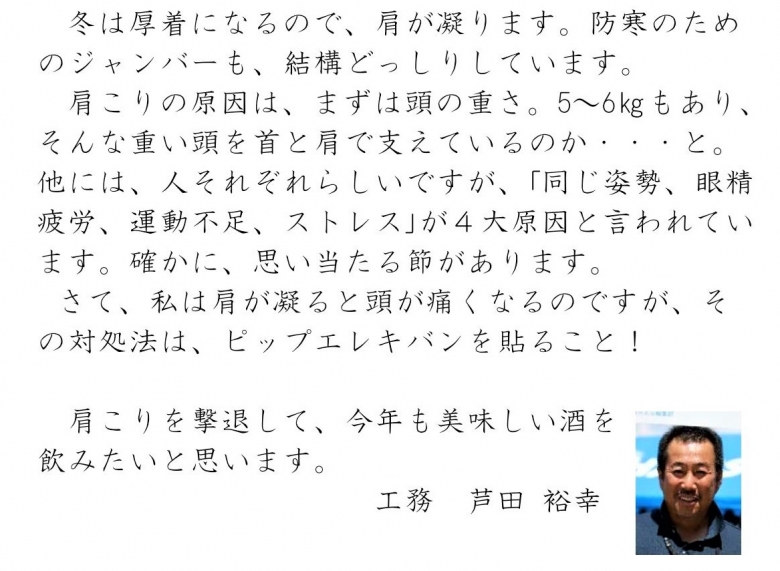 冬は厚着になるので、肩が凝ります。防寒のため
のジャンバーも、結構どっしりしています。
肩こりの原因は、まずは頭の重さ。5～6㎏もあり、
そんな重い頭を首と肩で支えているのか・・・と。
他には、人それぞれらしいですが、「同じ姿勢、眼精
疲労、運動不足、ストレス」が４大原因と言われてい
ます。確かに、思い当たる節があります。
さて、私は肩が凝ると頭が痛くなるのですが、そ
の対処法は、ピップエレキバンを貼ること！
肩こりを撃退して、今年も美味しい酒を
飲みたいと思います。
工務　芦田 裕幸